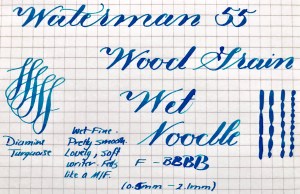 Waterman 55
Wood Grain
Wet
Noodle
Diamine
Turquoise
Wet-Fine.
Pretty smooth.
Lovely, soft
writer. Feels
like a M/F.
F - BBBB
(0.5mm - 2.1mm)